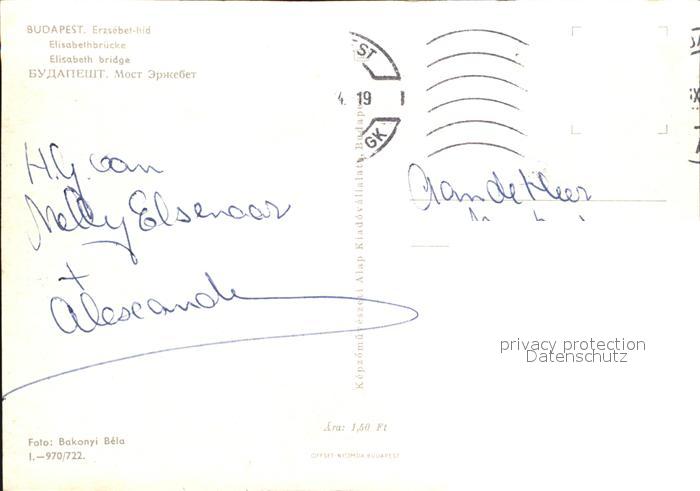 BUDAPEST. Erzsébet-híd
Elisabethbrücke
Elisabeth bridge
БУДАПЕШТ. Мост Эржебет
ST
4. 19
GK
H.G. van
Nelly Elsenaar
+
Alexander
Aan de Heer
Képzőművészeti Alap Kiadóvállalata, Budapest
privacy protection
Datenschutz
Ára: 1,50 Ft
Foto: Bakonyi Béla
I.—970/722.
OFFSET-NYOMDA BUDAPEST